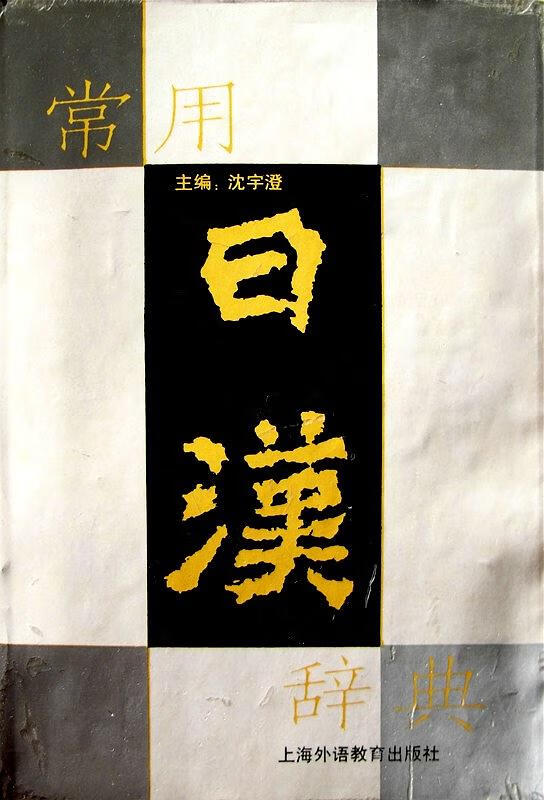 常用
主编：沈宇澄
日
漢
辞典
上海外语教育出版社